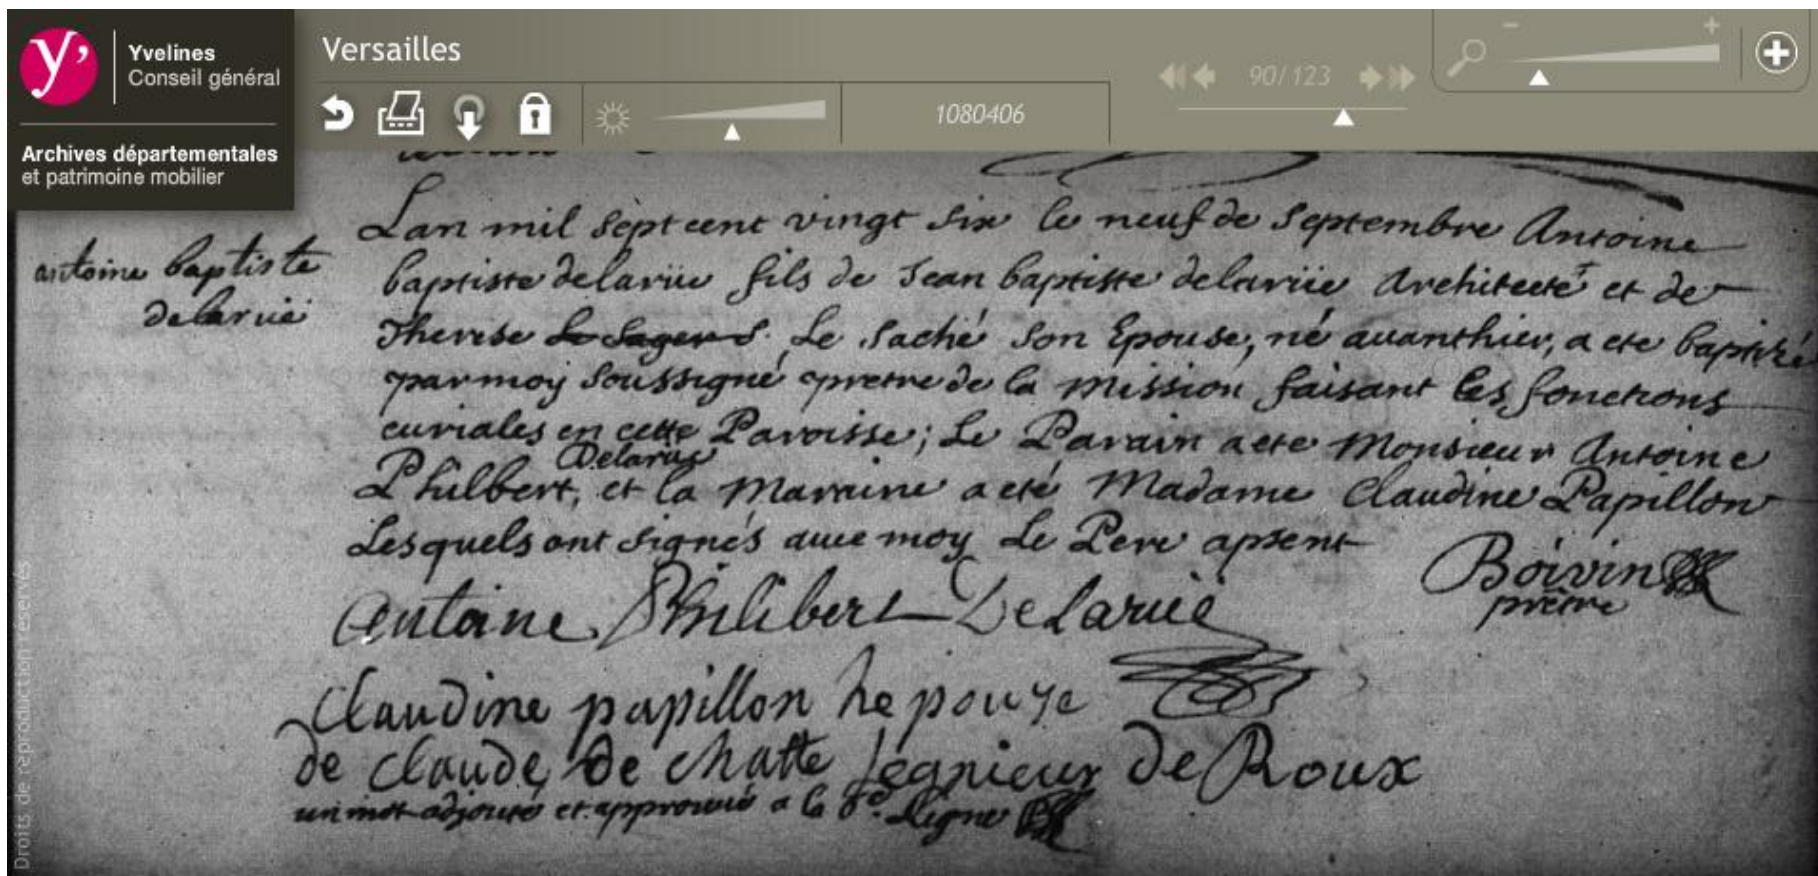 Yvelines
Conseil général
Archives départementales
et patrimoine mobilier
Versailles
1080406
90/123
antoine baptiste
delarüe
Lan mil sept cent vingt six le neuf de septembre Antoine
baptiste delarüe fils de Jean baptiste delarüe Architecte et de
Therese Le Saché son Epouse, né auanthier, a ete baptizé
par moy soussigné pretre de la mission faisant les fonctions
curiales en cette Paroisse; Le Parain a ete Monsieur Antoine
Delarue
Philbert, et la Maraine a eté Madame Claudine Papillon
Lesquels ont signés auec moy Le Pere apsent
Boivin
prêtre
antoine Philibert DeLarüe
Claudine papillon hepouze
de claude de chatte segnieur de Roux
un mot adjouté et approuué a la 6e. Ligne
Droits de reproduction réservés